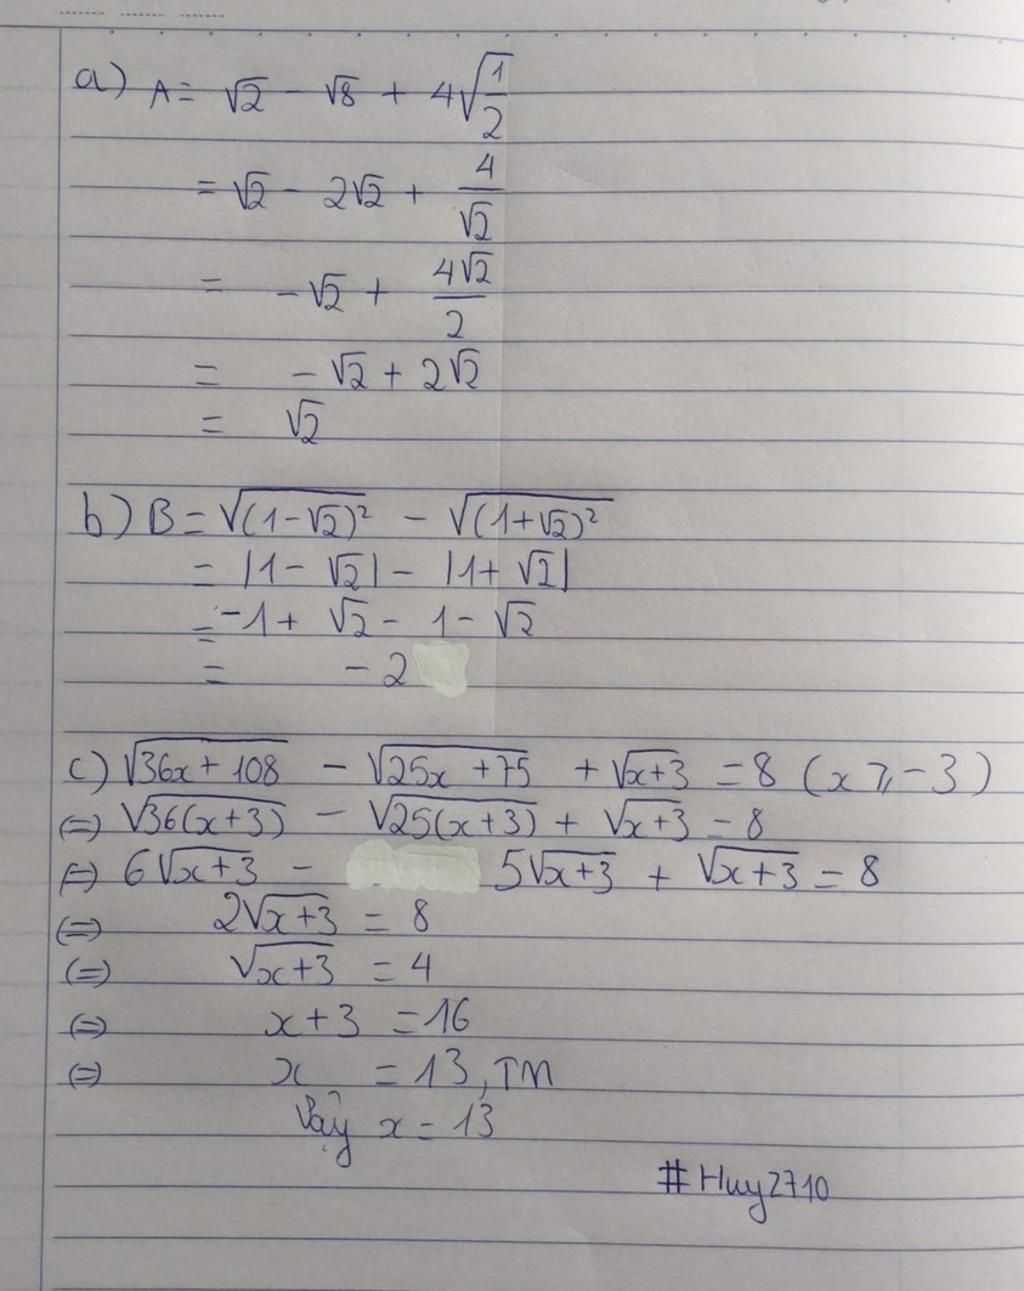 a) A = √2 - √8 + 4√(1/2)
= √2 - 2√2 + 4/√2
= -√2 + 4√2/2
= -√2 + 2√2
= √2
b) B = √(1-√2)² - √(1+√2)²
= |1 - √2| - |1 + √2|
= -1 + √2 - 1 - √2
= -2
c) √36x + 108 - √25x + 75 + √x+3 = 8 (x ≥ -3)
(=) √36(x+3) - √25(x+3) + √x+3 = 8
(=) 6√x+3 - 5√x+3 + √x+3 = 8
(=) 2√x+3 = 8
(=) √x+3 = 4
(=) x+3 = 16
(=) x = 13, TM
Vậy x = 13
#Huy2710